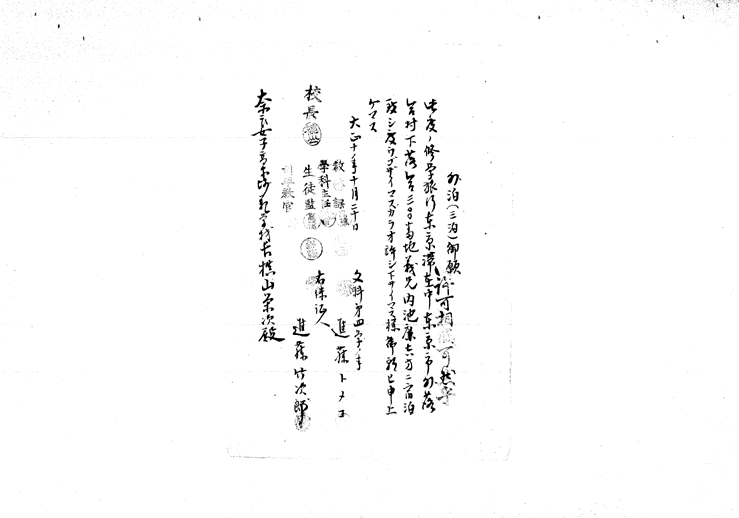 外泊(三泊)御願
許可相成可然乎
此度ノ修学旅行東京滞在中東京市外落
合村下落合三〇五番地義兄内池廉吉方ニ宿泊
致シ度ウゴザイマスカラオ許シ下サイマス様御願ヒ申上
ゲマス
大正十年十月二十日
文科第四学年
進藤トメヨ
右保証人
進藤竹次郎
教務課
学科主任
生徒監
校長
奈良女子高等師範学校長槙山栄次殿